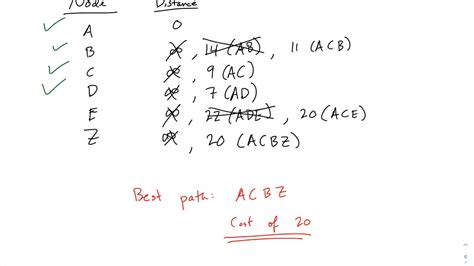 Node Distance
A 0
B ∞, 14 (AB), 11 (ACB)
C ∞, 9 (AC)
D ∞, 7 (AD)
E ∞, 22 (ADE), 20 (ACE)
Z ∞, 20 (ACBZ)
Best path: ACBZ
Cost of 20